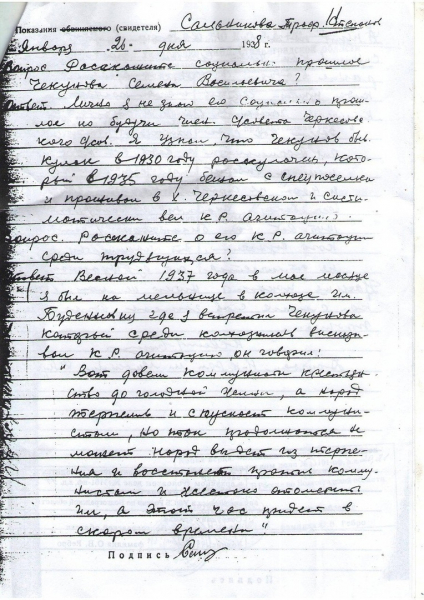 Показания обвиняемого (свидетеля) Сальникова Прос.
Января 26 дня 1938 г.
Вопрос Расскажите социально прошлое
Чекунова Семена Васильевича?
Ответ Лично я не знаю его социально прош-
лое но будучи член. Совета Черкесов-
кого я узнал, что Чекунов был
кулак в 1930 году раскулачен, кото-
рый в 1935 году бежал с спецпоселка
и проживал в х. Черкесовском и систе-
матически вел К.Р. агитацию.
Вопрос. Расскажите о его К.Р. агитации
среди трудящихся?
Ответ Весной 1937 года в мае месяце
я был на мельнице в колхозе им.
Буденного где я встретил Чекунова
который среди колхозников высказы-
вал К.Р. агитацию он говорил:
"Вот довели коммунисты крестьян-
ство до голодной жизни, а народ
терпель и коммуни-
стам, но так продолжаться не
может народ выдет из терпе-
ния и восстанет против комму-
нистам и жестоко отомстит
им, а этот час придет в
скором времени".
Подпись